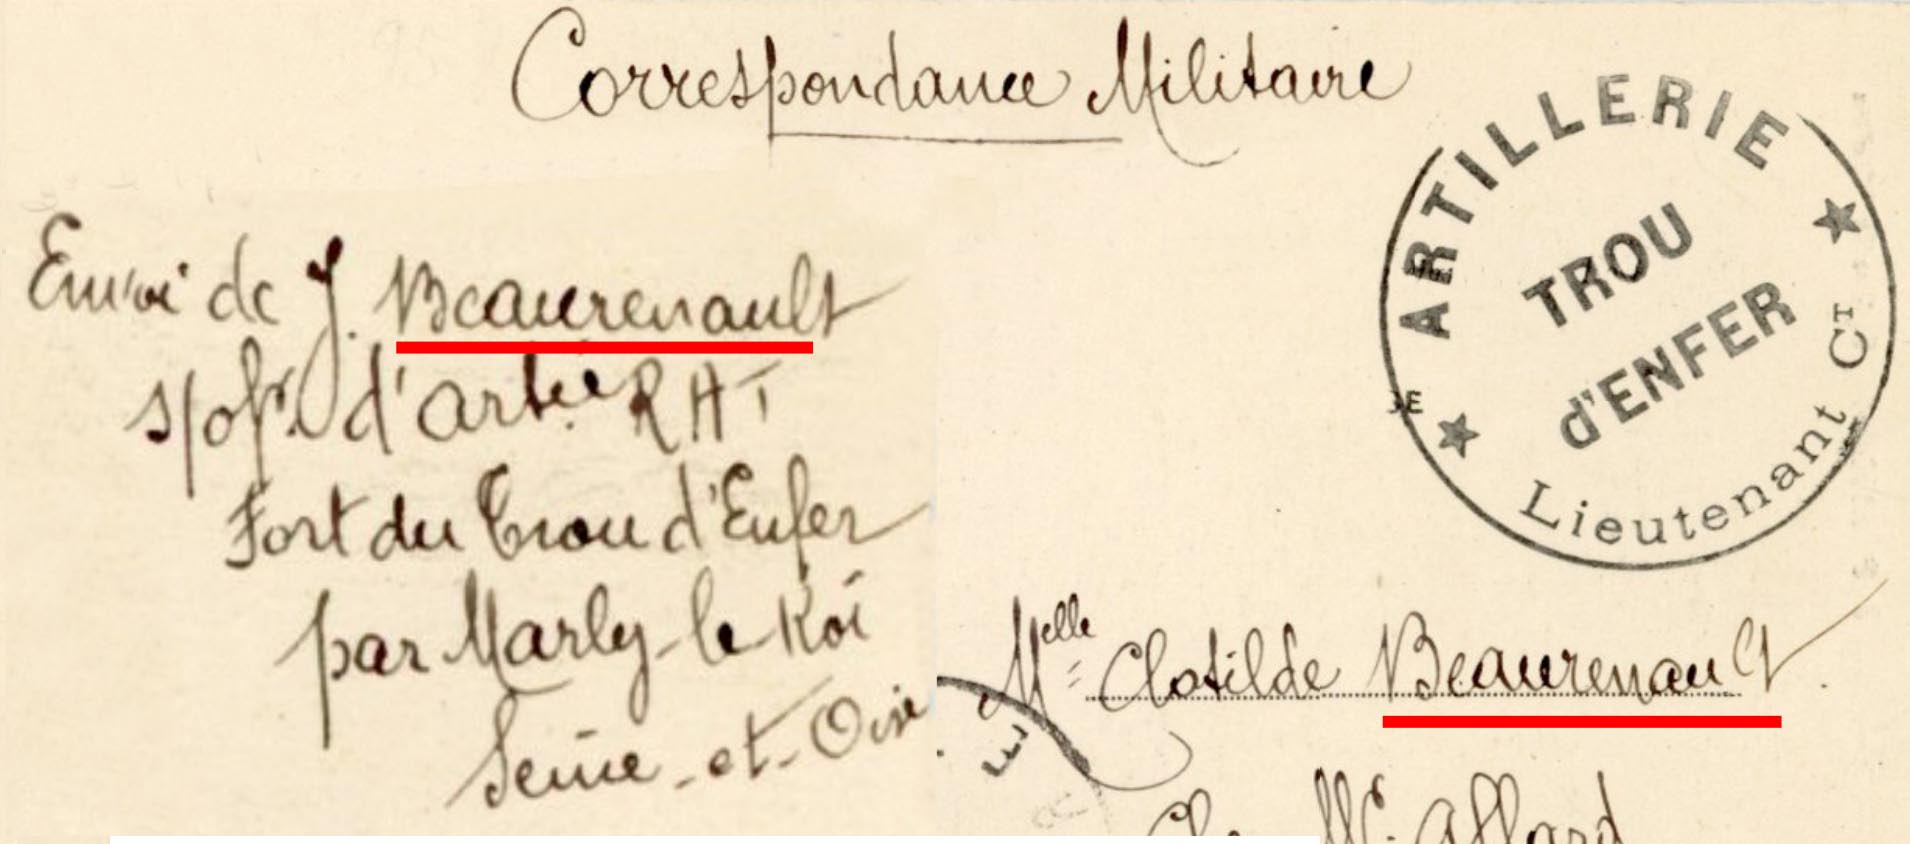 Correspondance Militaire
Envoi de J. Beaurenault
s/ofr. d'artie R A T
Fort du Trou d'Enfer
par Marly-le Roi
Seine-et-Oise
ARTILLERIE
TROU
d'ENFER
Lieutenant CT
Melle Clotilde Beaurenault
Ch. Mr. Allard